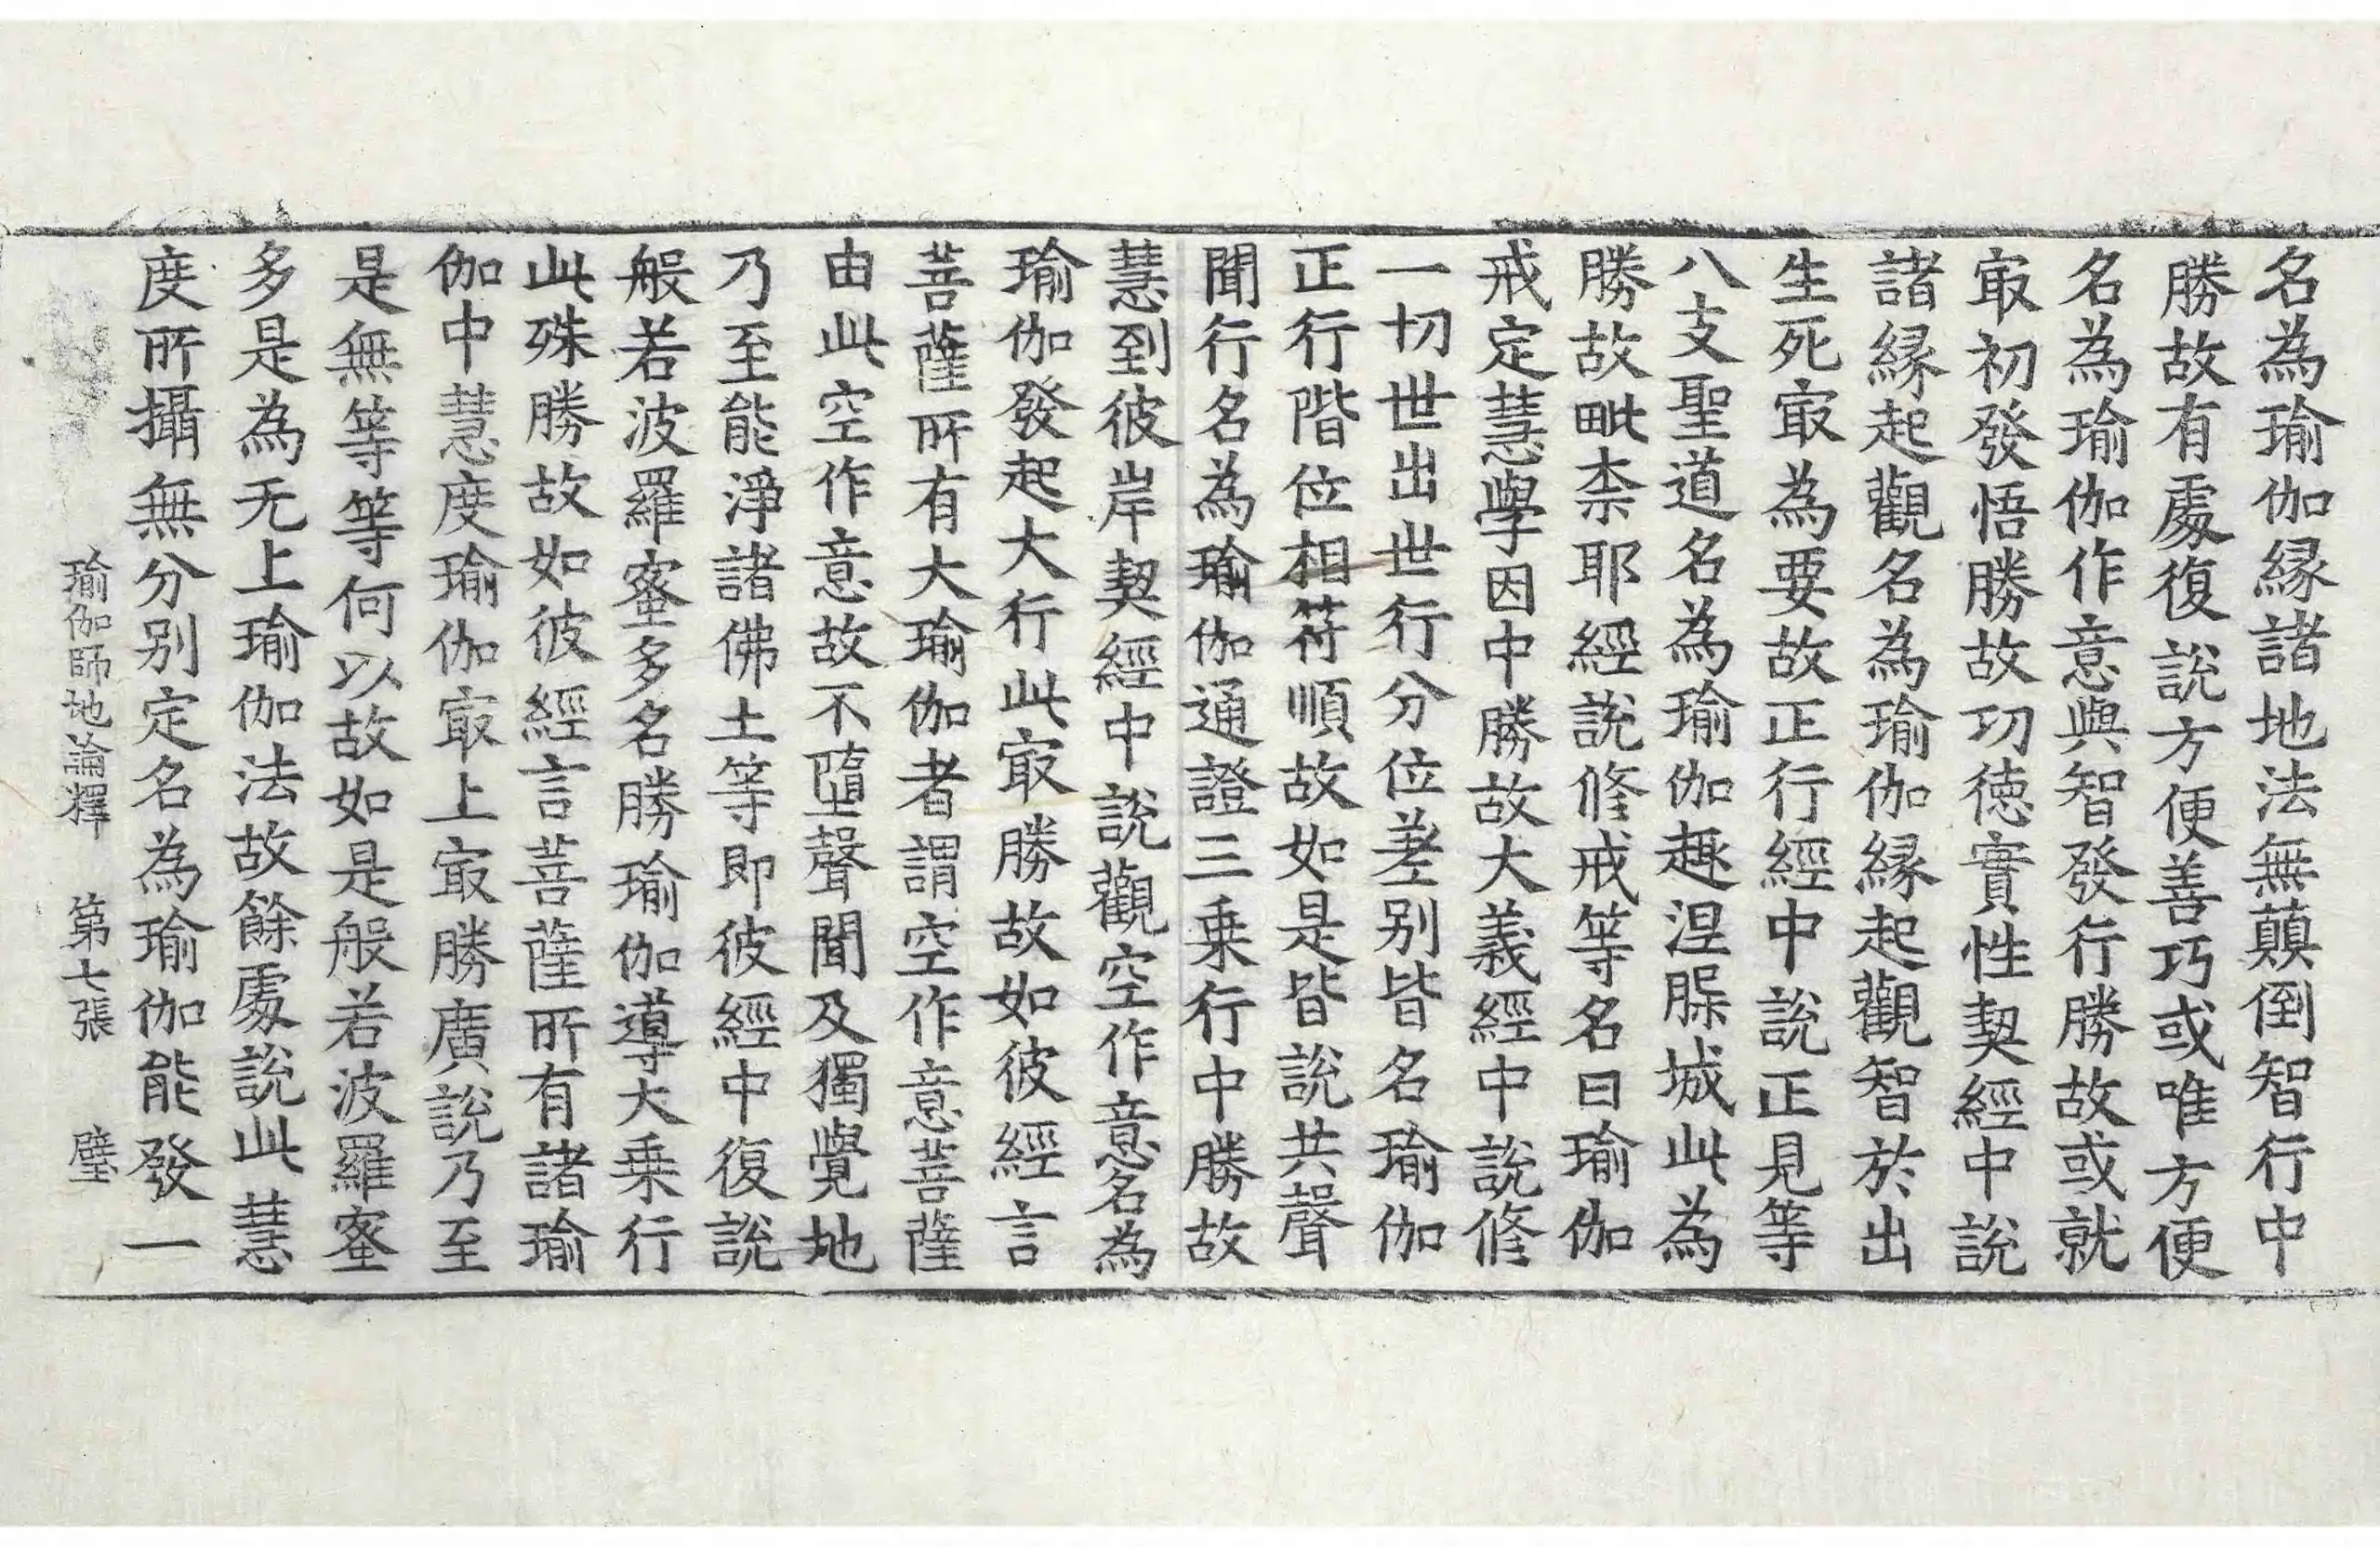 名為瑜伽縁諸地法無顛倒智行中
勝故有處復說方便善巧或唯方便
名為瑜伽作意與智發行勝故或就
㝡初發悟勝故功徳實性契經中說
諸縁起觀名為瑜伽縁起觀智於出
生死㝡為要故正行經中說正見等
八支聖道名為瑜伽趣涅槃城此為
勝故毗柰耶經說修戒等名曰瑜伽
戒定慧學因中勝故大義經中說修
一切世出世行分位差别皆名瑜伽
正行階位相符順故如是皆說共聲
聞行名為瑜伽通證三乗行中勝故
慧到彼岸契經中說觀空作意名為
瑜伽發起大行此㝡勝故如彼經言
菩薩所有大瑜伽者謂空作意菩薩
由此空作意故不墮聲聞及獨覺地
乃至能淨諸佛土等即彼經中復說
般若波羅蜜多名勝瑜伽導大乗行
此殊勝故如彼經言菩薩所有諸瑜
伽中慧度瑜伽㝡上㝡勝廣說乃至
是無等等何以故如是般若波羅蜜
多是為无上瑜伽法故餘處說此慧
度所攝無分别定名為瑜伽能發一
瑜伽師地論釋　第七張　璧